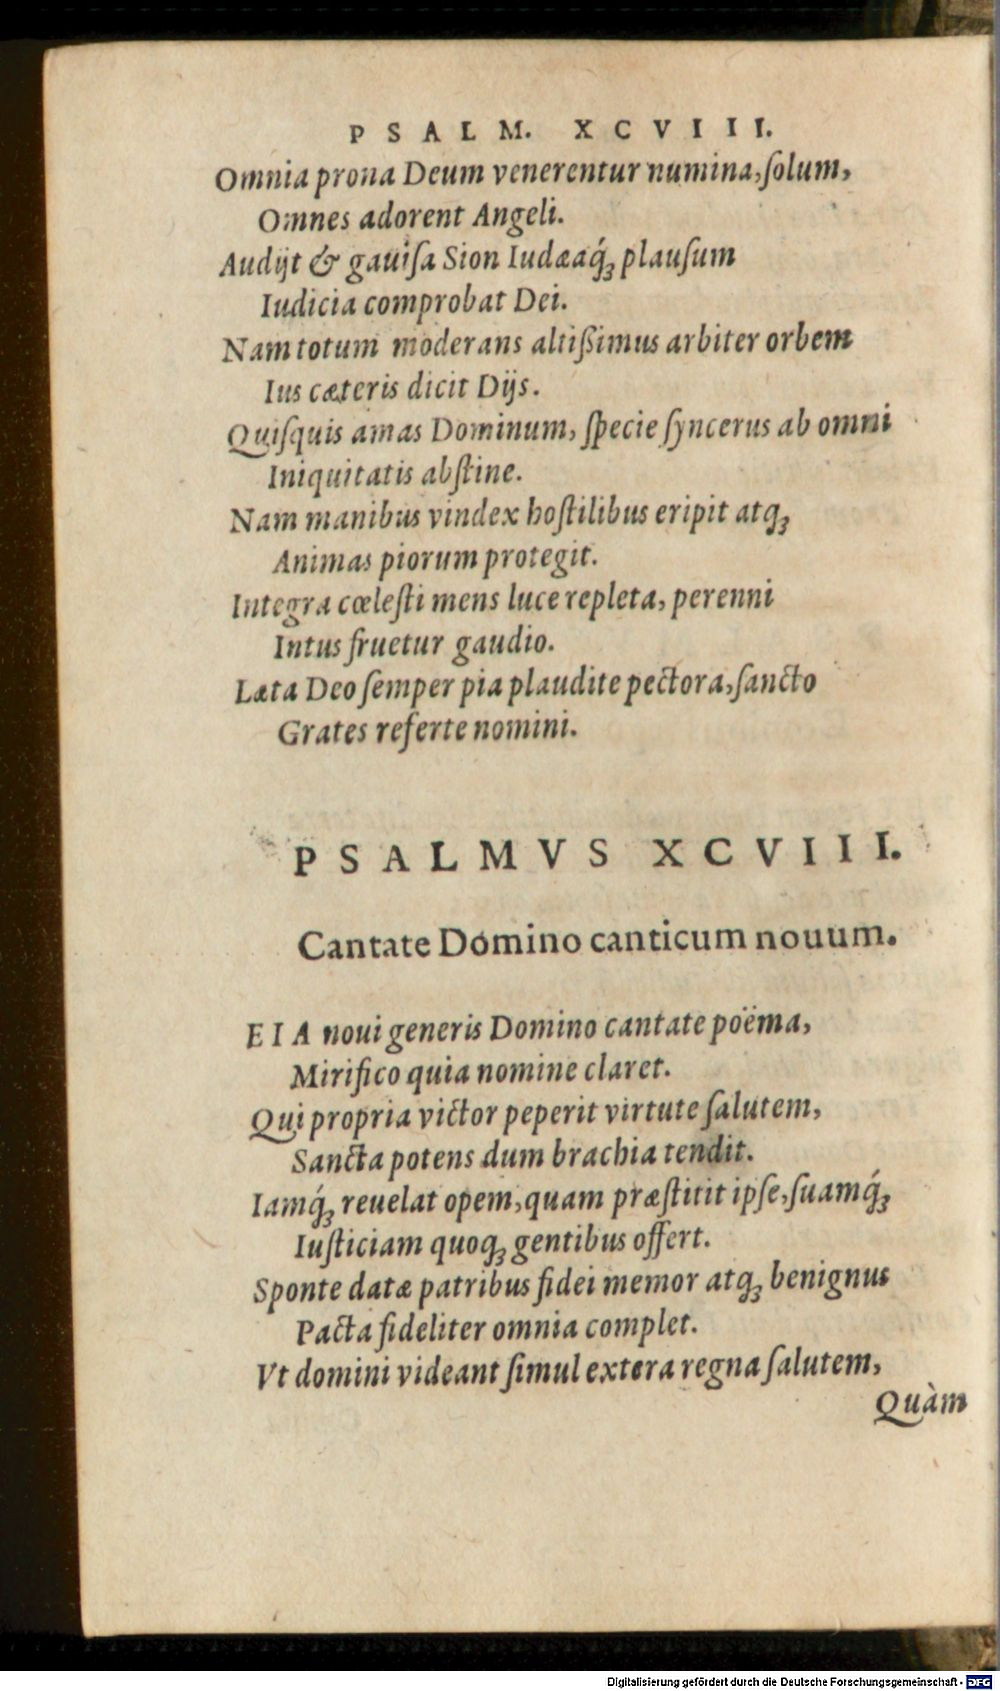 PSALM. XCVIII.
Omnia prona Deum venerentur numina, ſolum,
Omnes adorent Angeli.
Audijt & gauiſa Sion Iudæaq́ꝫ plauſum
Iudicia comprobat Dei.
Nam totum moderans altiſsimus arbiter orbem
Ius cæteris dicit Dijs.
Quiſquis amas Dominum, ſpecie ſyncerus ab omni
Iniquitatis abſtine.
Nam manibus vindex hoſtilibus eripit atqꝫ
Animas piorum protegit.
Integra cœleſti mens luce repleta, perenni
Intus fruetur gaudio.
Læta Deo ſemper pia plaudite pectora, ſancto
Grates referte nomini.
PSALMVS XCVIII.
Cantate Domino canticum nouum.
EIA noui generis Domino cantate poëma,
Mirifico quia nomine claret.
Qui propria victor peperit virtute ſalutem,
Sancta potens dum brachia tendit.
Iamq́ꝫ reuelat opem, quam præſtitit ipſe, ſuamq́ꝫ
Iuſticiam quoqꝫ gentibus offert.
Sponte datæ patribus fidei memor atqꝫ benignus
Pacta fideliter omnia complet.
Vt domini videant ſimul extera regna ſalutem,
Quàm
Digitalisierung gefördert durch die Deutsche Forschungsgemeinschaft - DFG